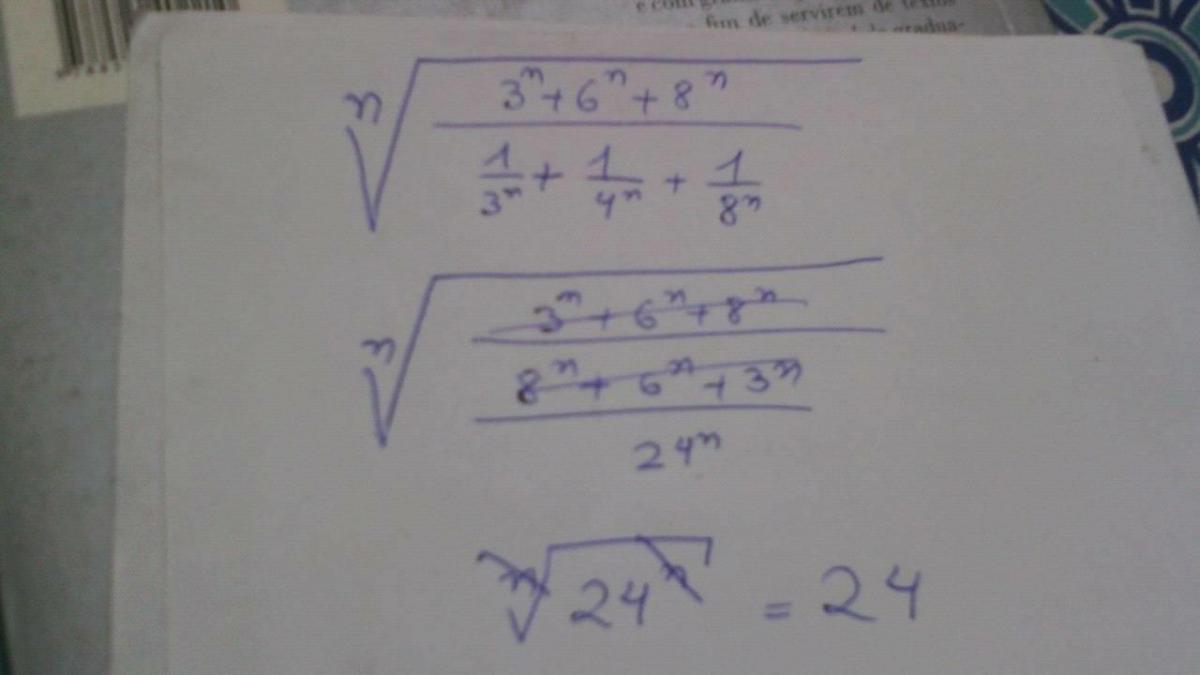 e com
fim de servirem de textos
gradua-
n√ 3ⁿ + 6ⁿ + 8ⁿ
1/3ⁿ + 1/4ⁿ + 1/8ⁿ
n√ 3ⁿ + 6ⁿ + 8ⁿ
8ⁿ + 6ⁿ + 3ⁿ
24ⁿ
n√ 24ⁿ = 24